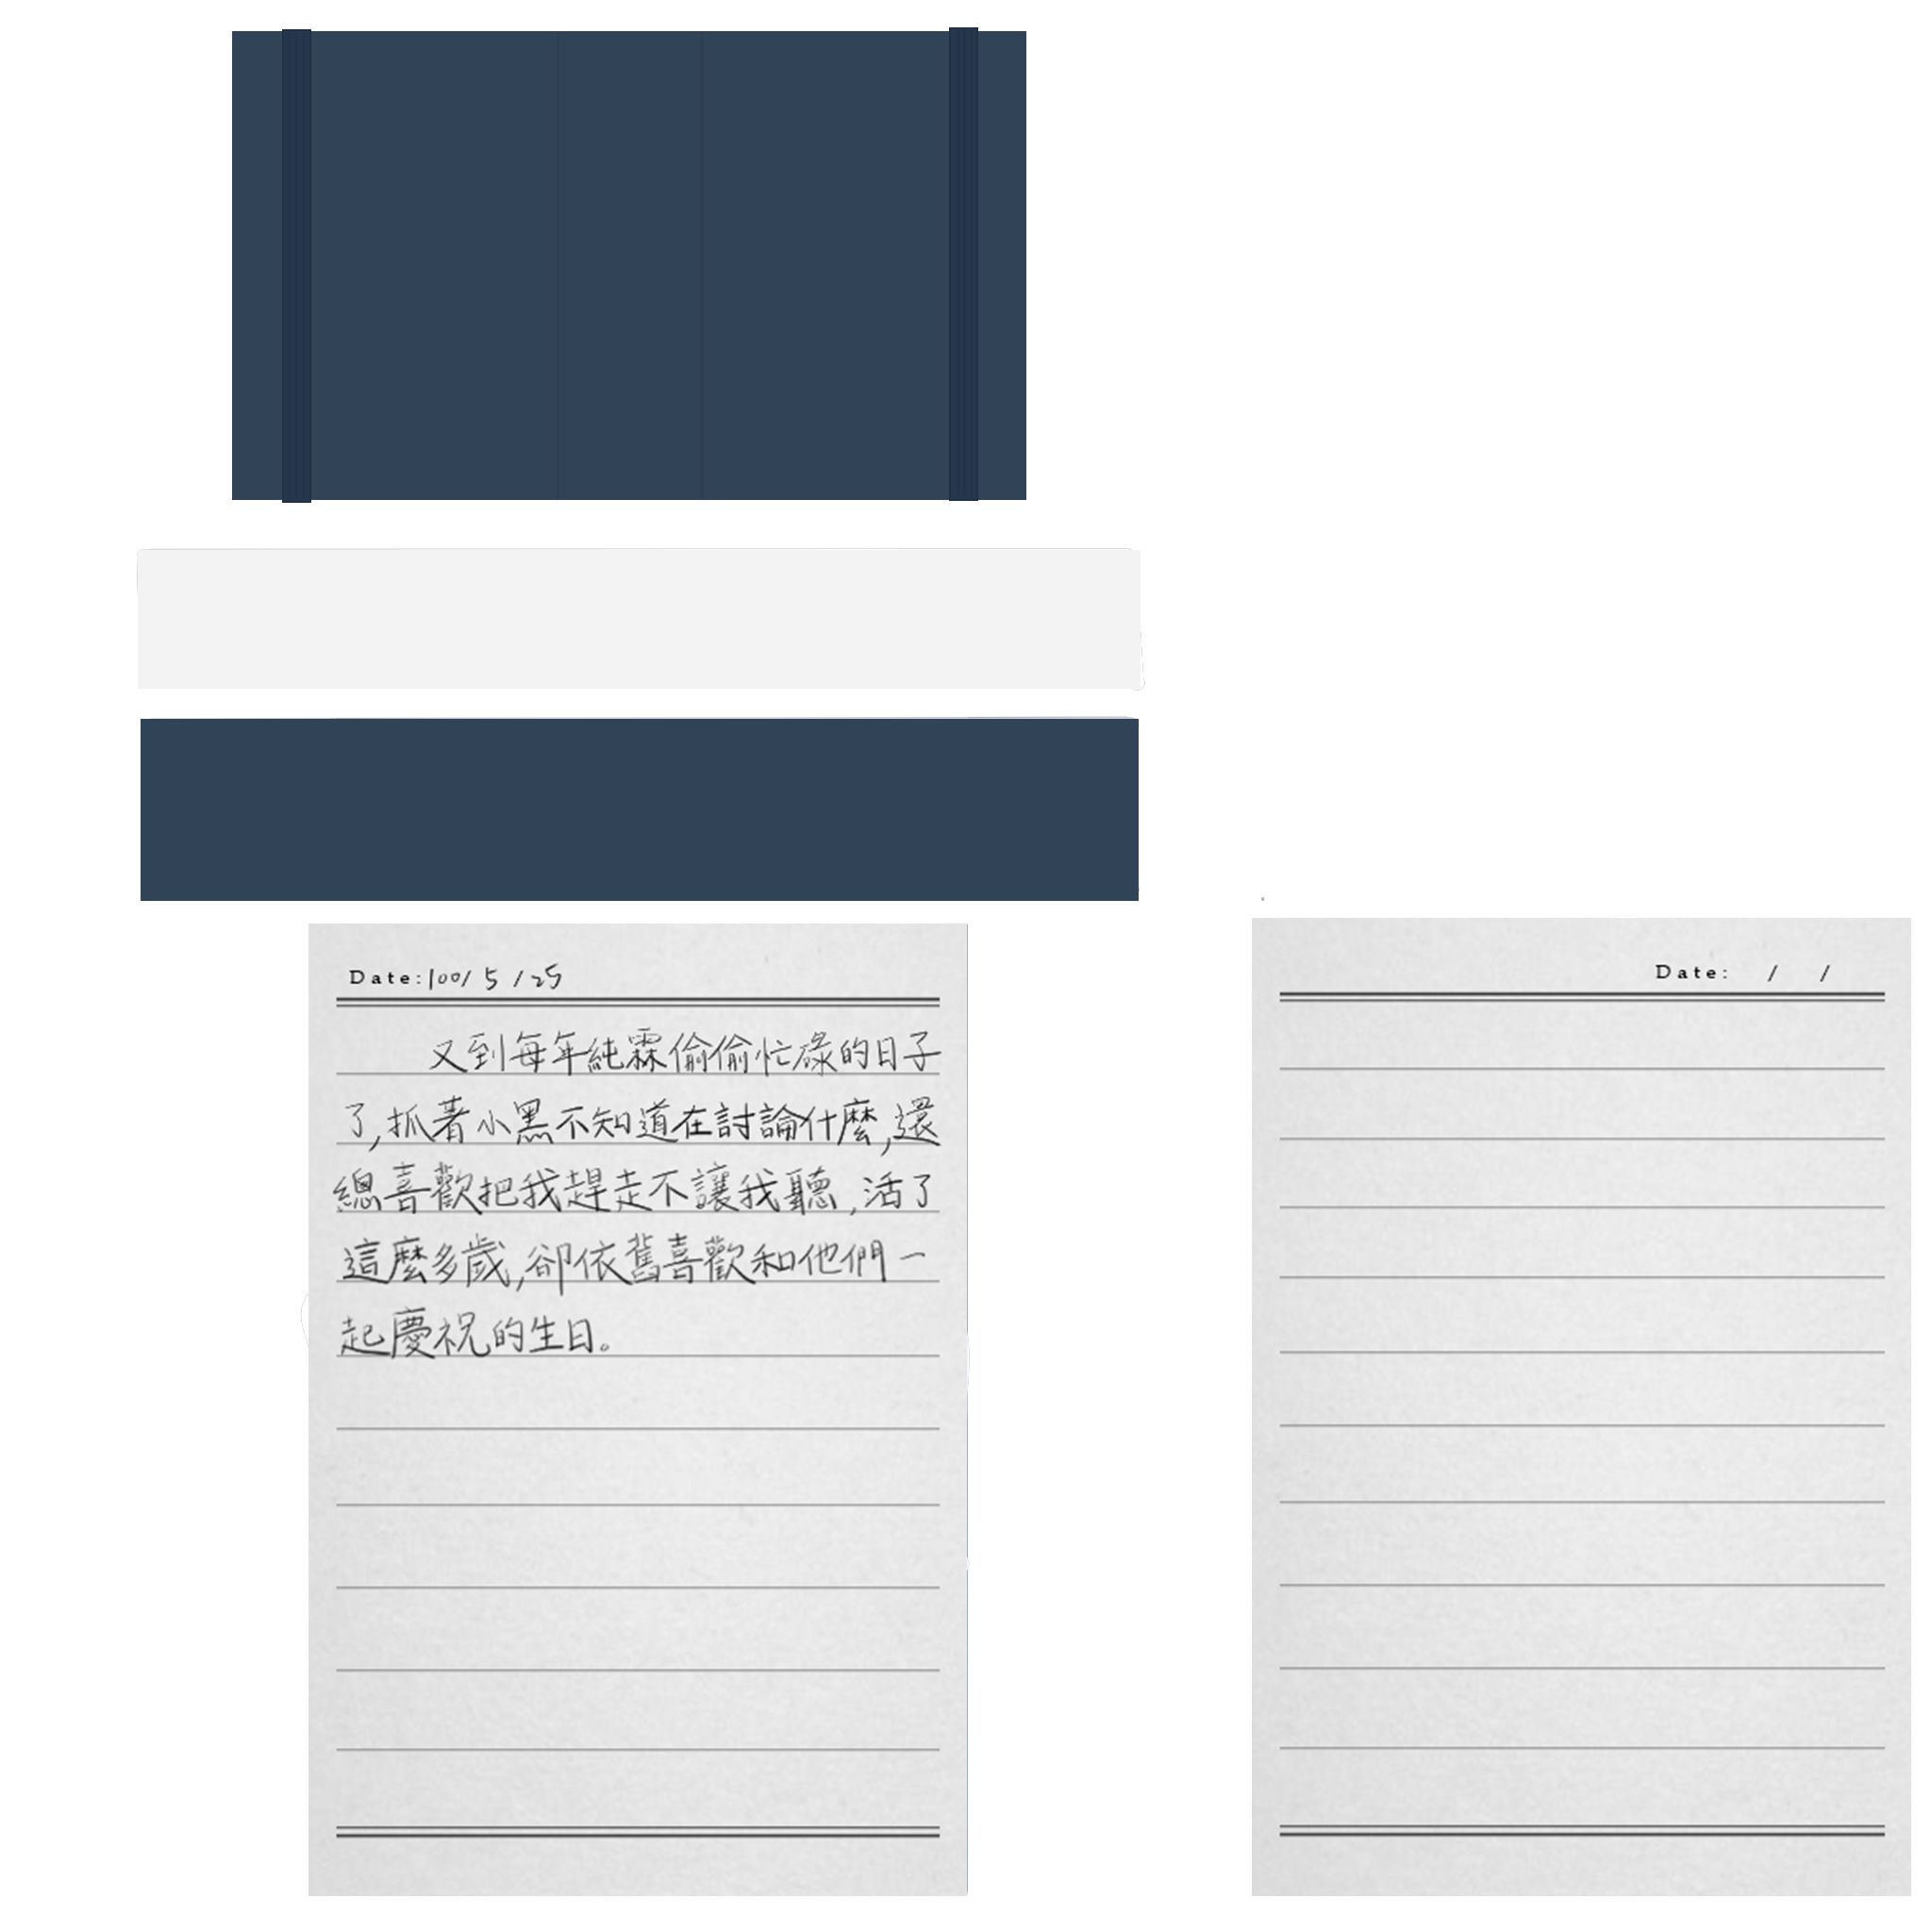 Date:100/5/25
又到每年純霖偷偷忙碌的日子
了,抓著小黑不知道在討論什麼,還
總喜歡把我趕走不讓我聽,活了
這麼多歲,卻依舊喜歡和他們一
起慶祝的生日。
Date: / /